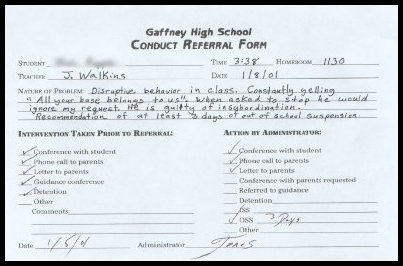 Gaffney High School
CONDUCT REFERRAL FORM
STUDENT TIME 3:38 HOMEROOM 1130
TEACHER J. Walkins DATE 1/8/01
NATURE OF PROBLEM: Disruptive behavior in class. Constantly yelling
"All your base belongs to us". When asked to stop he would
ignore my request. He is guilty of insubordination.
Recommendation of at least 3 days of out of school suspension
INTERVENTION TAKEN PRIOR TO REFERRAL: ACTION BY ADMINISTRATOR:
Conference with student Conference with student
Phone call to parents Phone call to parents
Letter to parents Letter to parents
Guidance conference Conference with parents requested
Detention Referred to guidance
Other Detention
Comments ISS
OSS 3 Days
Other
Date 1/5/01 Administrator Jones